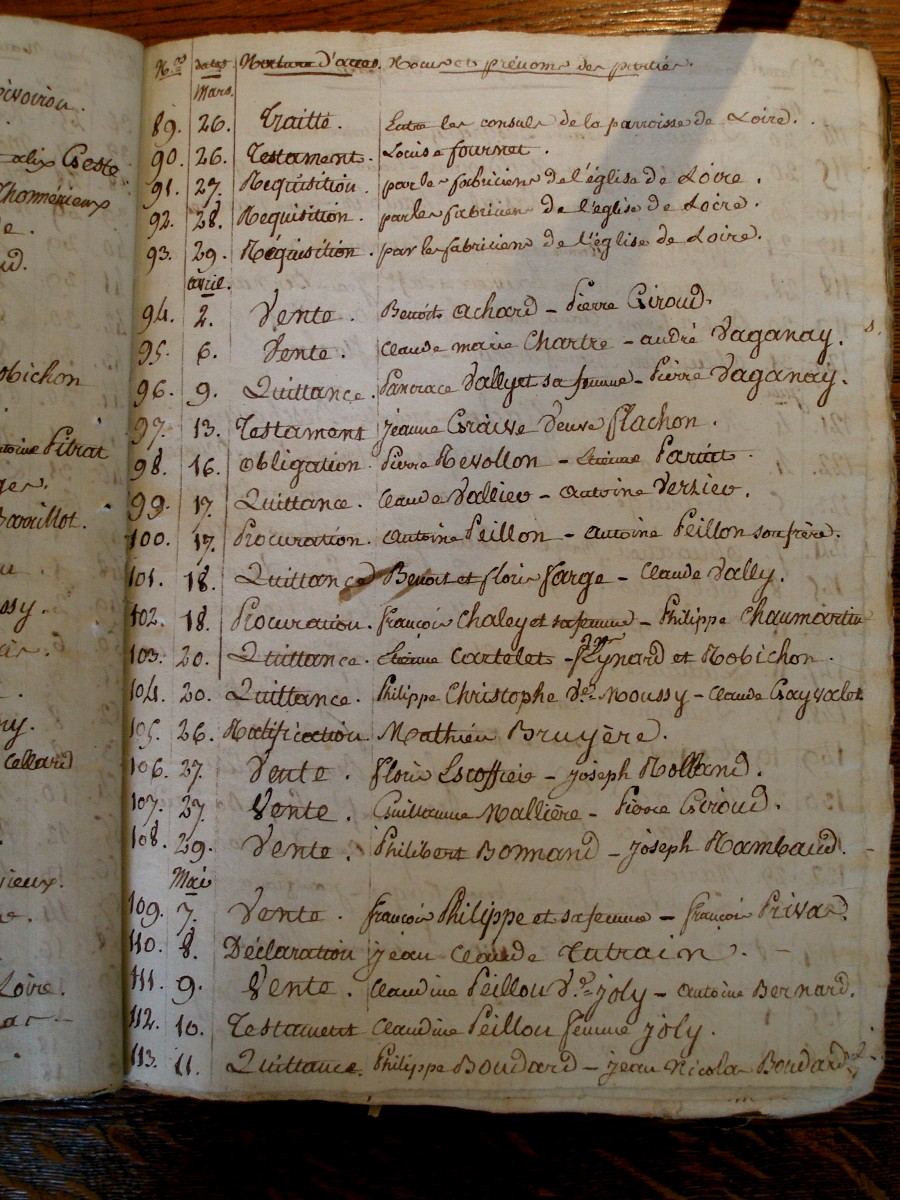 N.os dates Nature d'actes. Noms et prénoms des parties.
Mars.
89. 26. Traitté. Entre les consuls de la parroisse de Loire.
90. 26. Testament. Louise fournet.
91. 27. Requisition. par les fabriciens de l'église de Loire.
92. 28. Requisition. par les fabriciens de l'église de Loire.
93. 29. Réquisition. par les fabriciens de l'église de Loire.
avril.
94. 2. Vente. Benoit achard - Pierre Giroud.
95. 6. Vente. Claude marie Chartre - andré Vaganay.
96. 9. Quittance. Pancrace Vally et sa femme - Pierre Vaganay.
97. 13. Testament jeanne veuve flachon.
98. 16. Obligation. Pierre Revollon - Etienne Pariat.
99. 17. Quittance. Claude Vallier - antoine Verzier.
100. 17. Procuration. antoine Peillon - antoine Peillon son frère.
101. 18. Quittance Benoit et floris farge - Claude Vally.
102. 18. Procuration. françois Chaley et sa femme - Philippe Chaumartin
103. 20. Quittance. Etienne Cartelet - et Robichon.
104. 20. Quittance. Philippe Christophe de Moussy - Claude Gayvalet
105. 26. Ratification. Mathieu Bruyère.
106. 27. Vente. floris Escoffier - joseph Rolland.
107. 27. Vente. Guillaume Mallière - Pierre Giroud.
108. 29. Vente. Philibert Bonnand - joseph Rambaud.
Mai
109. 7. Vente. françois Philippe et sa femme - françois Privas.
110. 8. Déclaration jean Claude Tutrain.
111. 9. Vente. Claudine Peillon V.ve joly - antoine Bernard.
112. 10. Testament Claudine Peillon femme joly.
113. 11. Quittance. Philippe Boudard - jean Nicolas Boudard
alix Geste
Thomérieux
obichon
antoine Pitrat
Barillot.
Cellard
Loire.